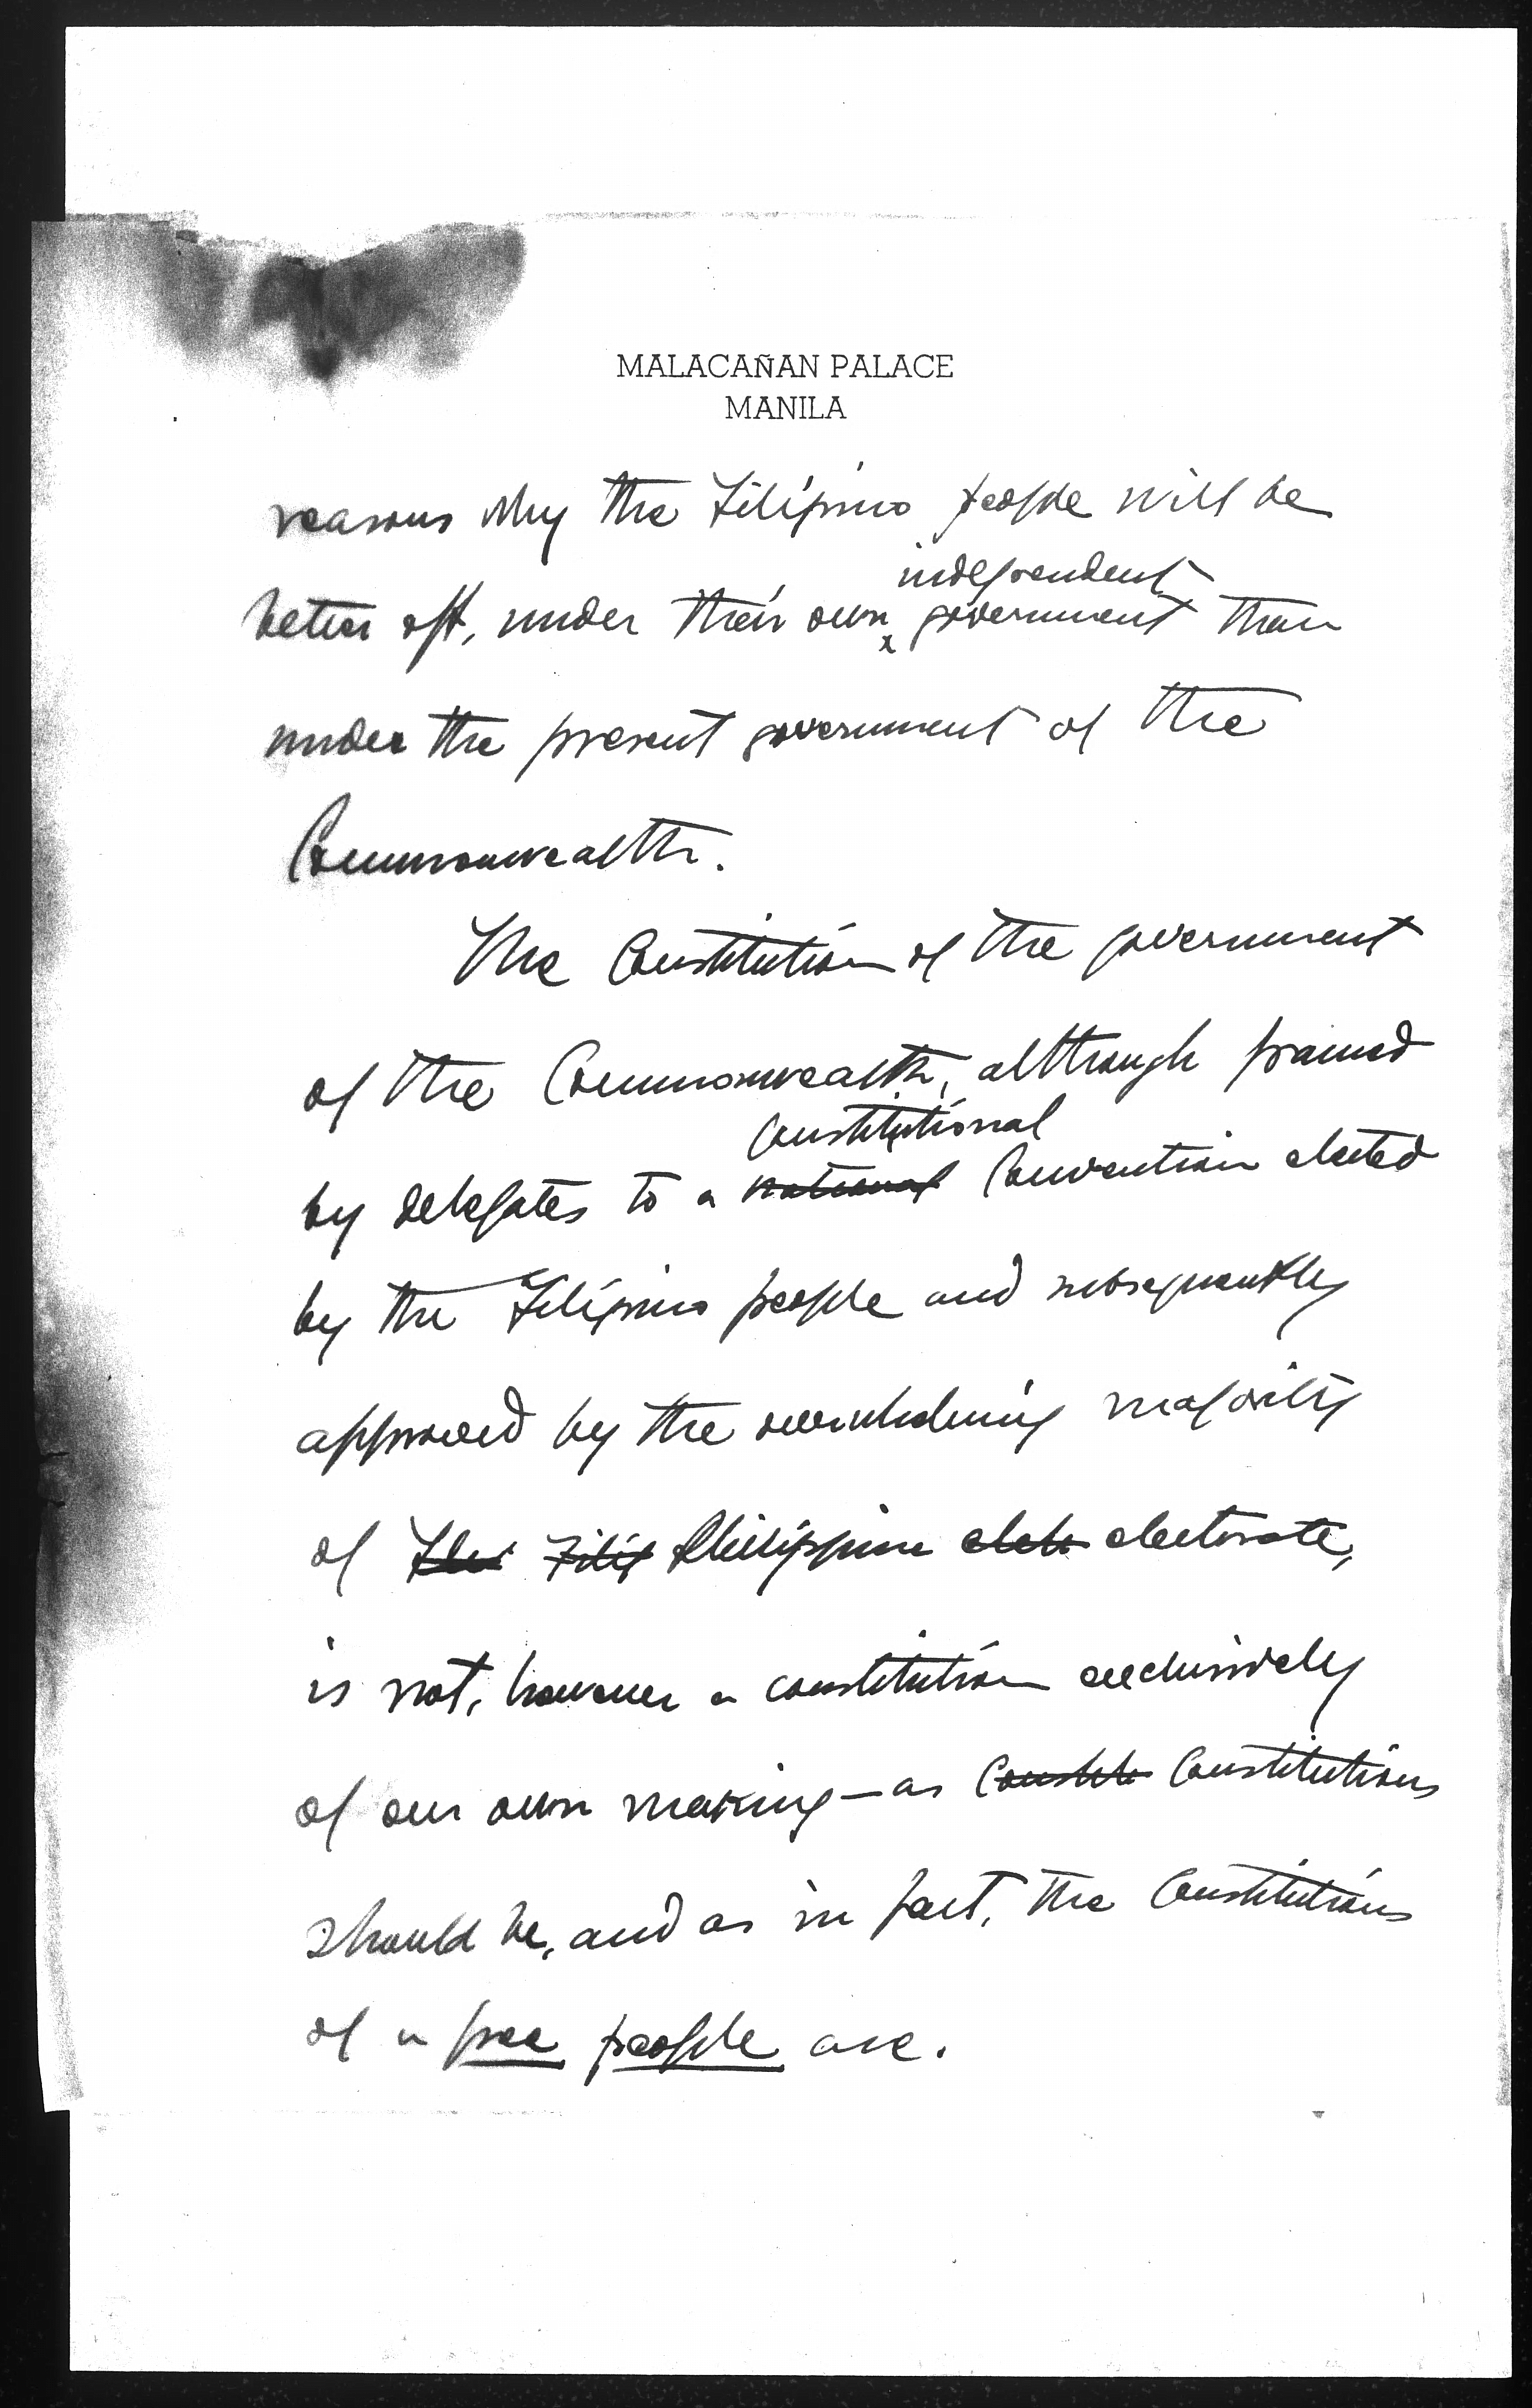 MALACAÑAN PALACE
MANILA
reasons why the Filipino people will be
independent
better off, under their own government than
under the present government of the
Commonwealth.
The Constitution of the government
of the Commonwealth, although framed
constitutional
by delegates to a national Convention elected
by the Filipino people and subsequently
approved by the overwhelming majority
of the Filip Philippine elect electorate,
is not, however a constitution exclusively
of our own making—as Constit Constitutions
should be, and as in fact, the Constitutions
of a free people are.